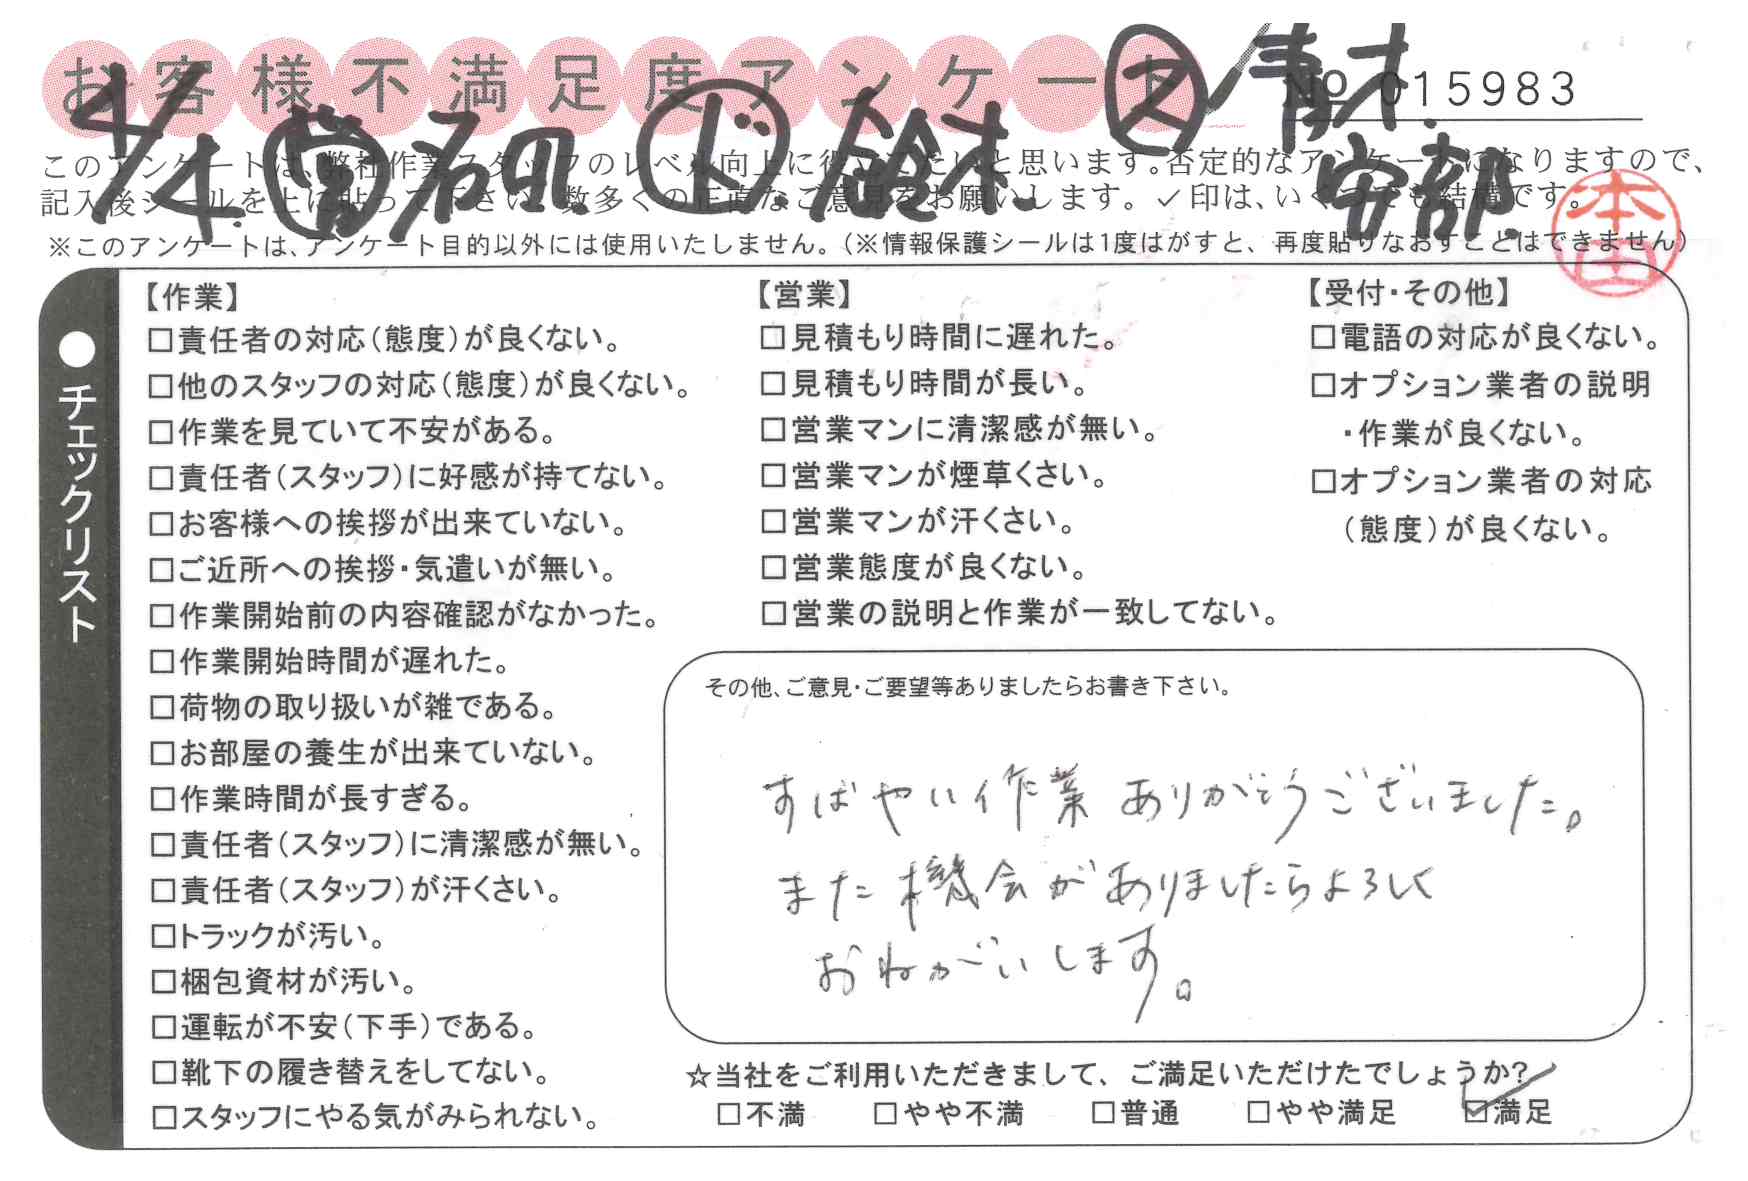 お客様不満足度アンケート
No 015983
4/4 営 石沢 ド 鈴木 ス 青才 安部
このアンケートは、弊社作業スタッフのレベル向上に役立てたいと思います。否定的なアンケートになりますので、
記入後シールを上に貼って下さい。数多くの正直なご意見をお願いします。✓印は、いくつでも結構です。
※このアンケートは、アンケート目的以外には使用いたしません。(※情報保護シールは1度はがすと、再度貼りなおすことはできません)
本田
●チェックリスト
【作業】
□責任者の対応(態度)が良くない。
□他のスタッフの対応(態度)が良くない。
□作業を見ていて不安がある。
□責任者(スタッフ)に好感が持てない。
□お客様への挨拶が出来ていない。
□ご近所への挨拶・気遣いが無い。
□作業開始前の内容確認がなかった。
□作業開始時間が遅れた。
□荷物の取り扱いが雑である。
□お部屋の養生が出来ていない。
□作業時間が長すぎる。
□責任者(スタッフ)に清潔感が無い。
□責任者(スタッフ)が汗くさい。
□トラックが汚い。
□梱包資材が汚い。
□運転が不安(下手)である。
□靴下の履き替えをしてない。
□スタッフにやる気がみられない。
【営業】
□見積もり時間に遅れた。
□見積もり時間が長い。
□営業マンに清潔感が無い。
□営業マンが煙草くさい。
□営業マンが汗くさい。
□営業態度が良くない。
□営業の説明と作業が一致してない。
【受付・その他】
□電話の対応が良くない。
□オプション業者の説明
・作業が良くない。
□オプション業者の対応
(態度)が良くない。
その他、ご意見・ご要望等ありましたらお書き下さい。
すばやい作業ありがとうございました。
また機会がありましたらよろしく
おねがいします。
☆当社をご利用いただきまして、ご満足いただけたでしょうか?
□不満 □やや不満 □普通 □やや満足 ☑満足